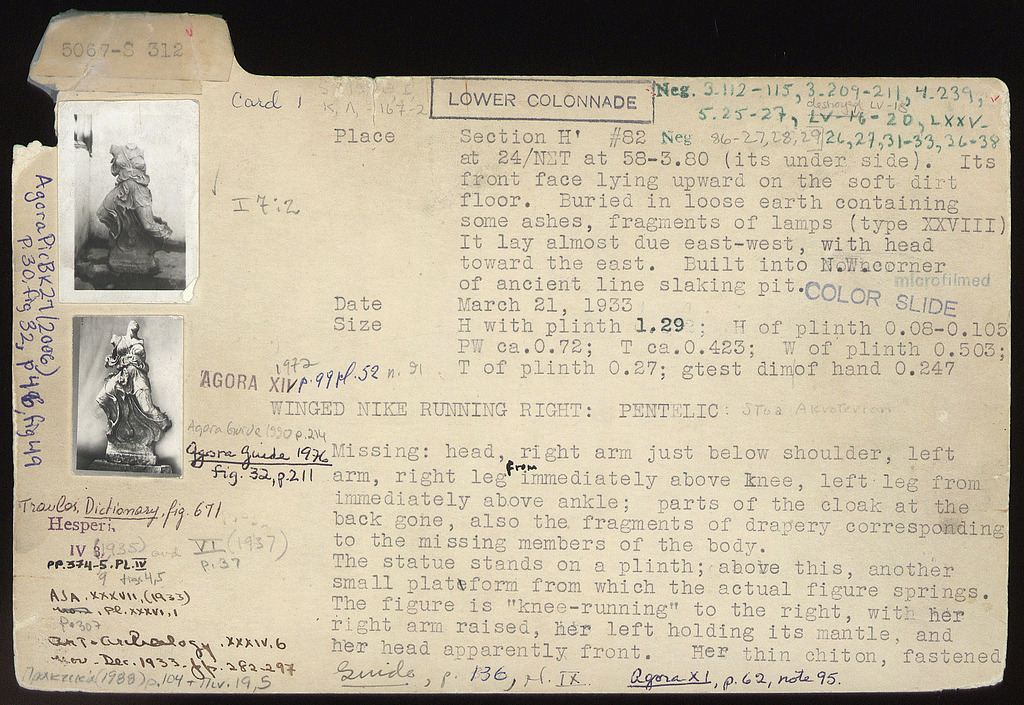 5067-S 312
Card 1
LOWER COLONNADE
Neg. 3.112-115, 3.209-211, 4.239,
5.25-27, LV-16-20, LXXV-
destroyed LV-18
Place Section H' #82 Neg 86-27,28,29 26,27,31-33,36-38
at 24/NΣT at 58-3.80 (its under side). Its
front face lying upward on the soft dirt
floor. Buried in loose earth containing
some ashes, fragments of lamps (type XXVIII)
It lay almost due east-west, with head
toward the east. Built into N.W. corner
of ancient line slaking pit.
I 7:2
microfilmed
COLOR SLIDE
Date March 21, 1933
Size H with plinth 1.29; H of plinth 0.08-0.105
PW ca.0.72; T ca.0.423; W of plinth 0.503;
T of plinth 0.27; gtest dim of hand 0.247
1972
AGORA XIV p.99 pl.52 n. 91
WINGED NIKE RUNNING RIGHT: PENTELIC: Stoa Akroterion
Missing: head, right arm just below shoulder, left
arm, right leg from immediately above knee, left leg from
immediately above ankle; parts of the cloak at the
back gone, also the fragments of drapery corresponding
to the missing members of the body.
The statue stands on a plinth; above this, another
small platform from which the actual figure springs.
The figure is "knee-running" to the right, with her
right arm raised, her left holding its mantle, and
her head apparently front. Her thin chiton, fastened
Agora PicBk 27 (2006)
p.30, fig 32, p.48, fig 49
Agora Guide 1990 p.214
Agora Guide 1976
fig. 32, p.211
Travlos, Dictionary, fig. 671
Hesperia
IV (1935) and VI (1937)
pp. 374-5. PL. IV p. 37
figs 4,5
AJA. XXXVII, (1933)
Pl. XXXVI, 1
p. 307
Art & Archaeology XXXIV.6
Nov-Dec. 1933. pp. 282-297
Πρακτικά (1988) p.104 + Πιν. 19,5
Guide, p. 136, pl. IX.
Agora XI, p.62, note 95.